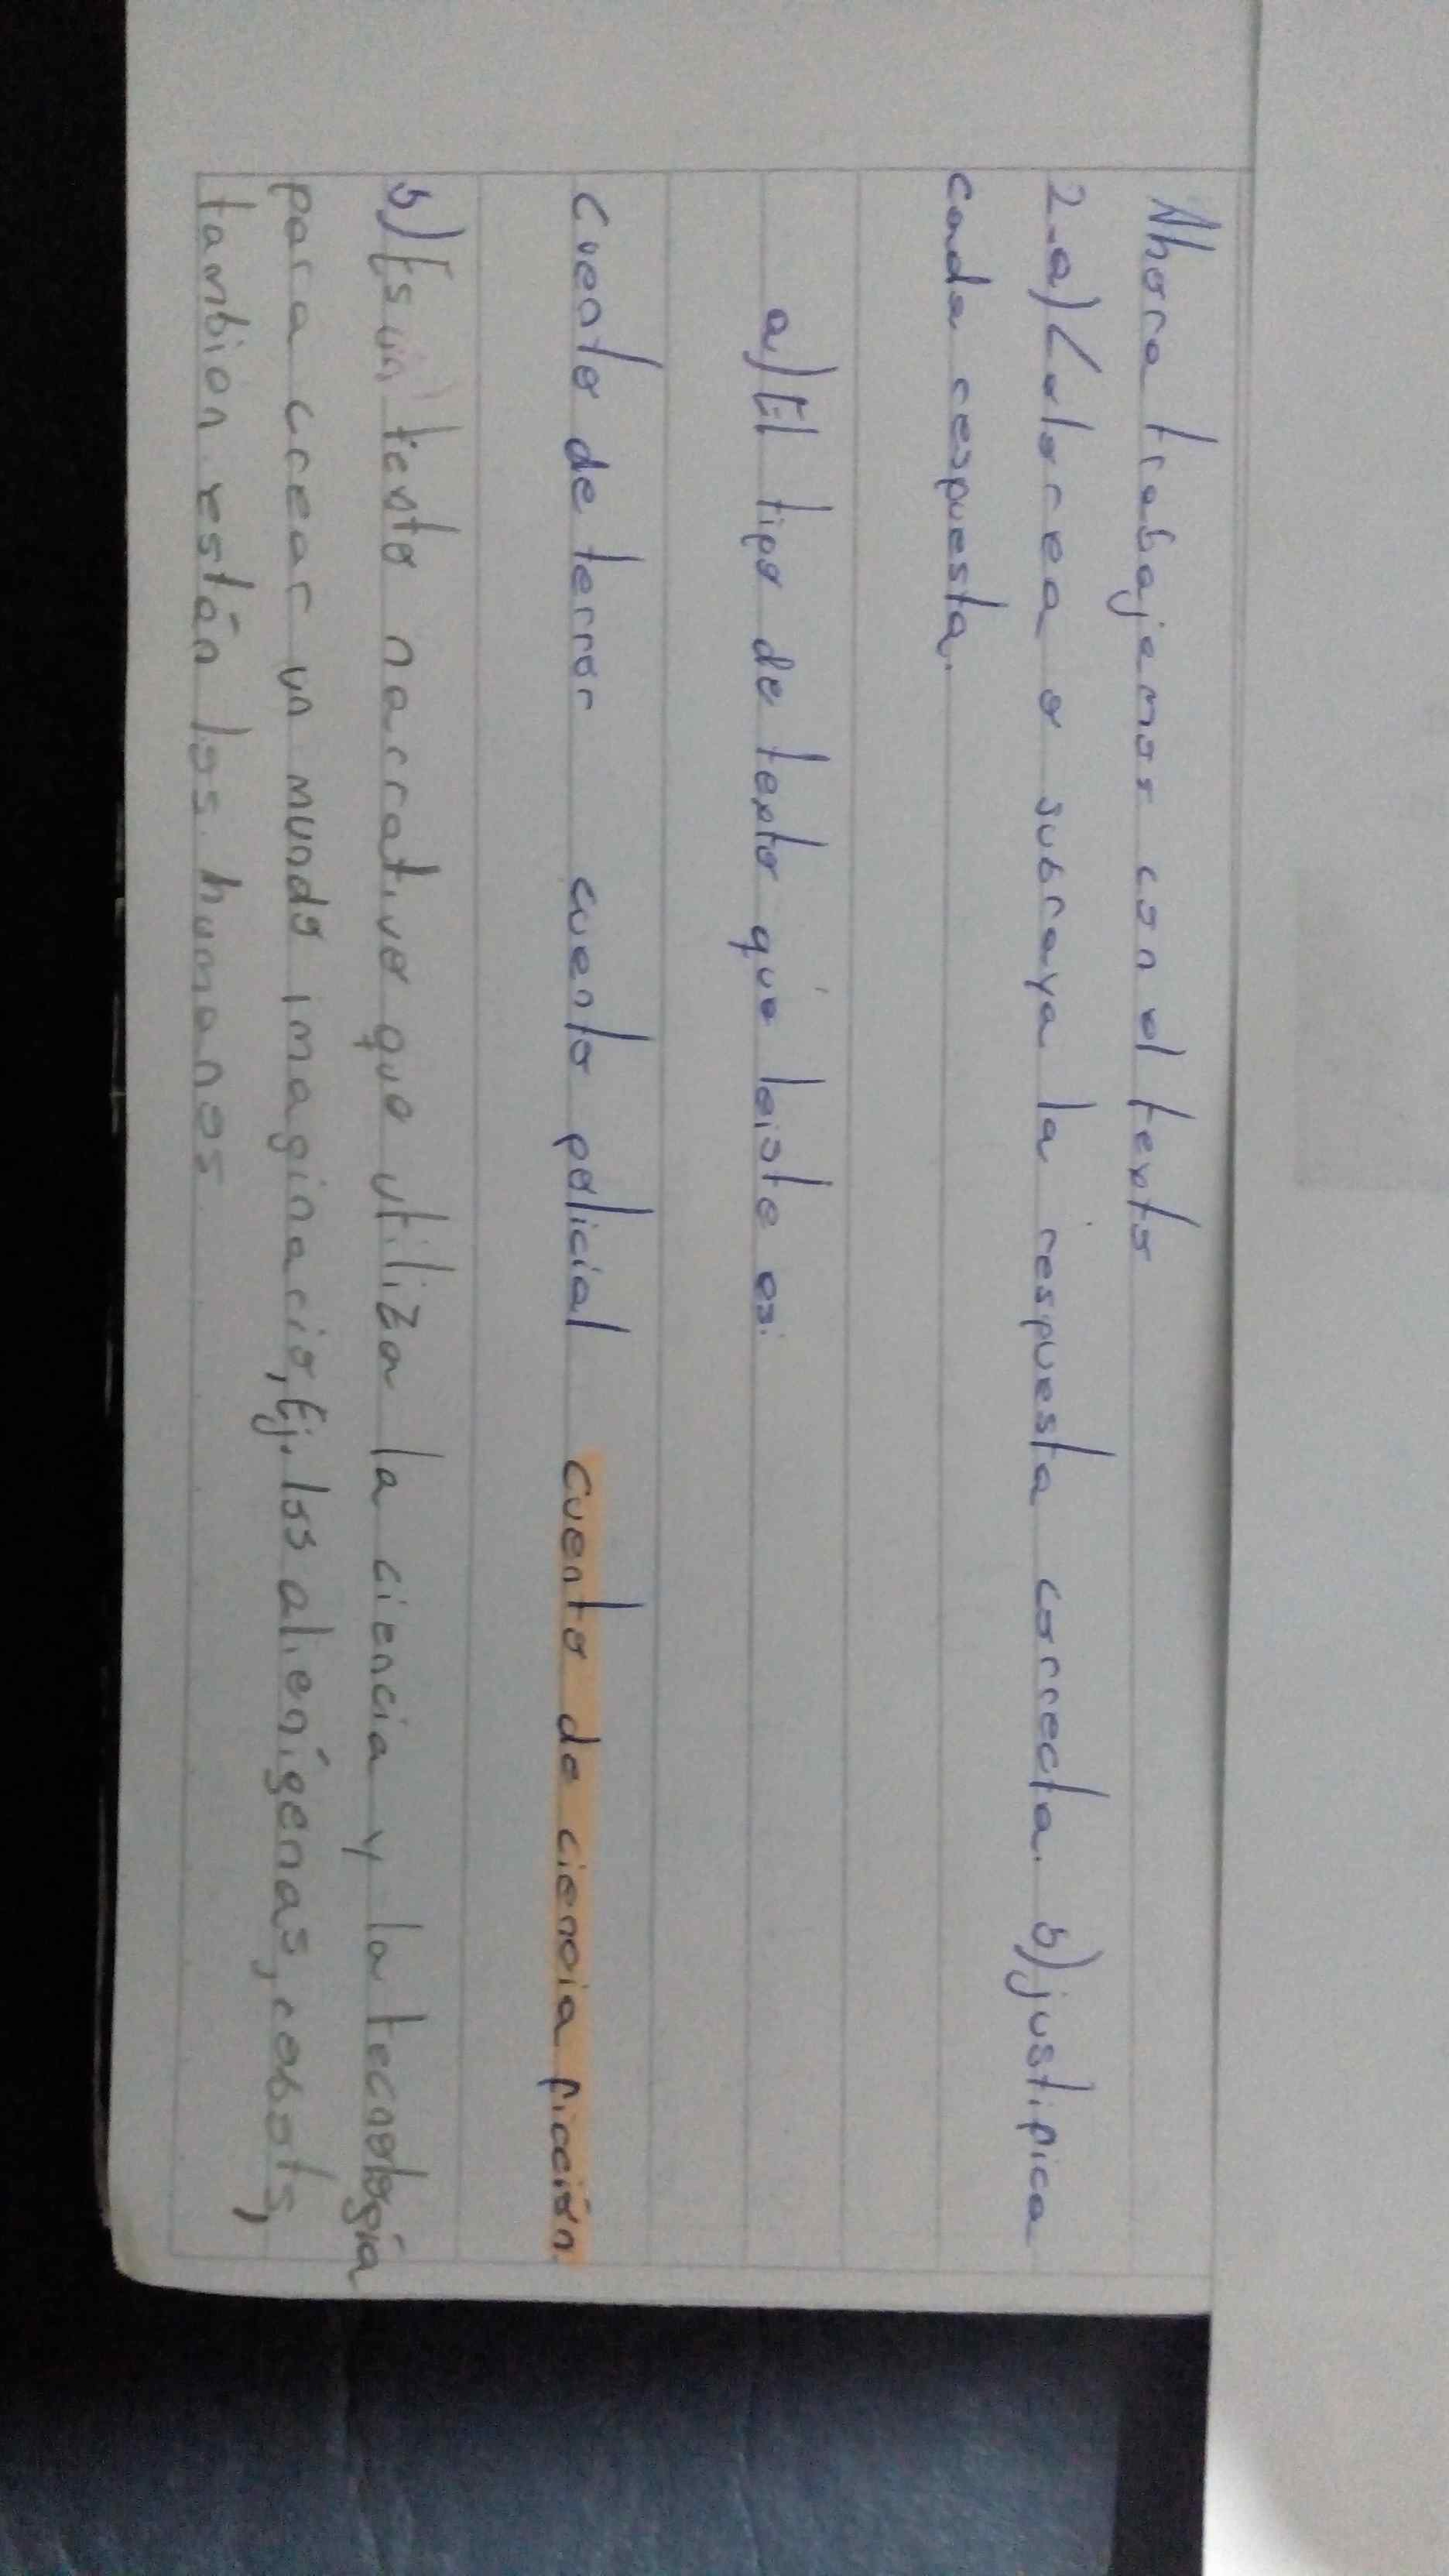 Ahora trabajemos con el texto
2-a) Colorea o subraya la respuesta correcta. b) justifica
cada respuesta.
a) El tipo de texto que leiste es:
Cuento de terror cuento policial cuento de ciencia ficción
b) Es un texto narrativo que utiliza la ciencia y la tecnología
para crear un mundo imaginario, Ej. los alienígenas, robots,
tambien están los humanos